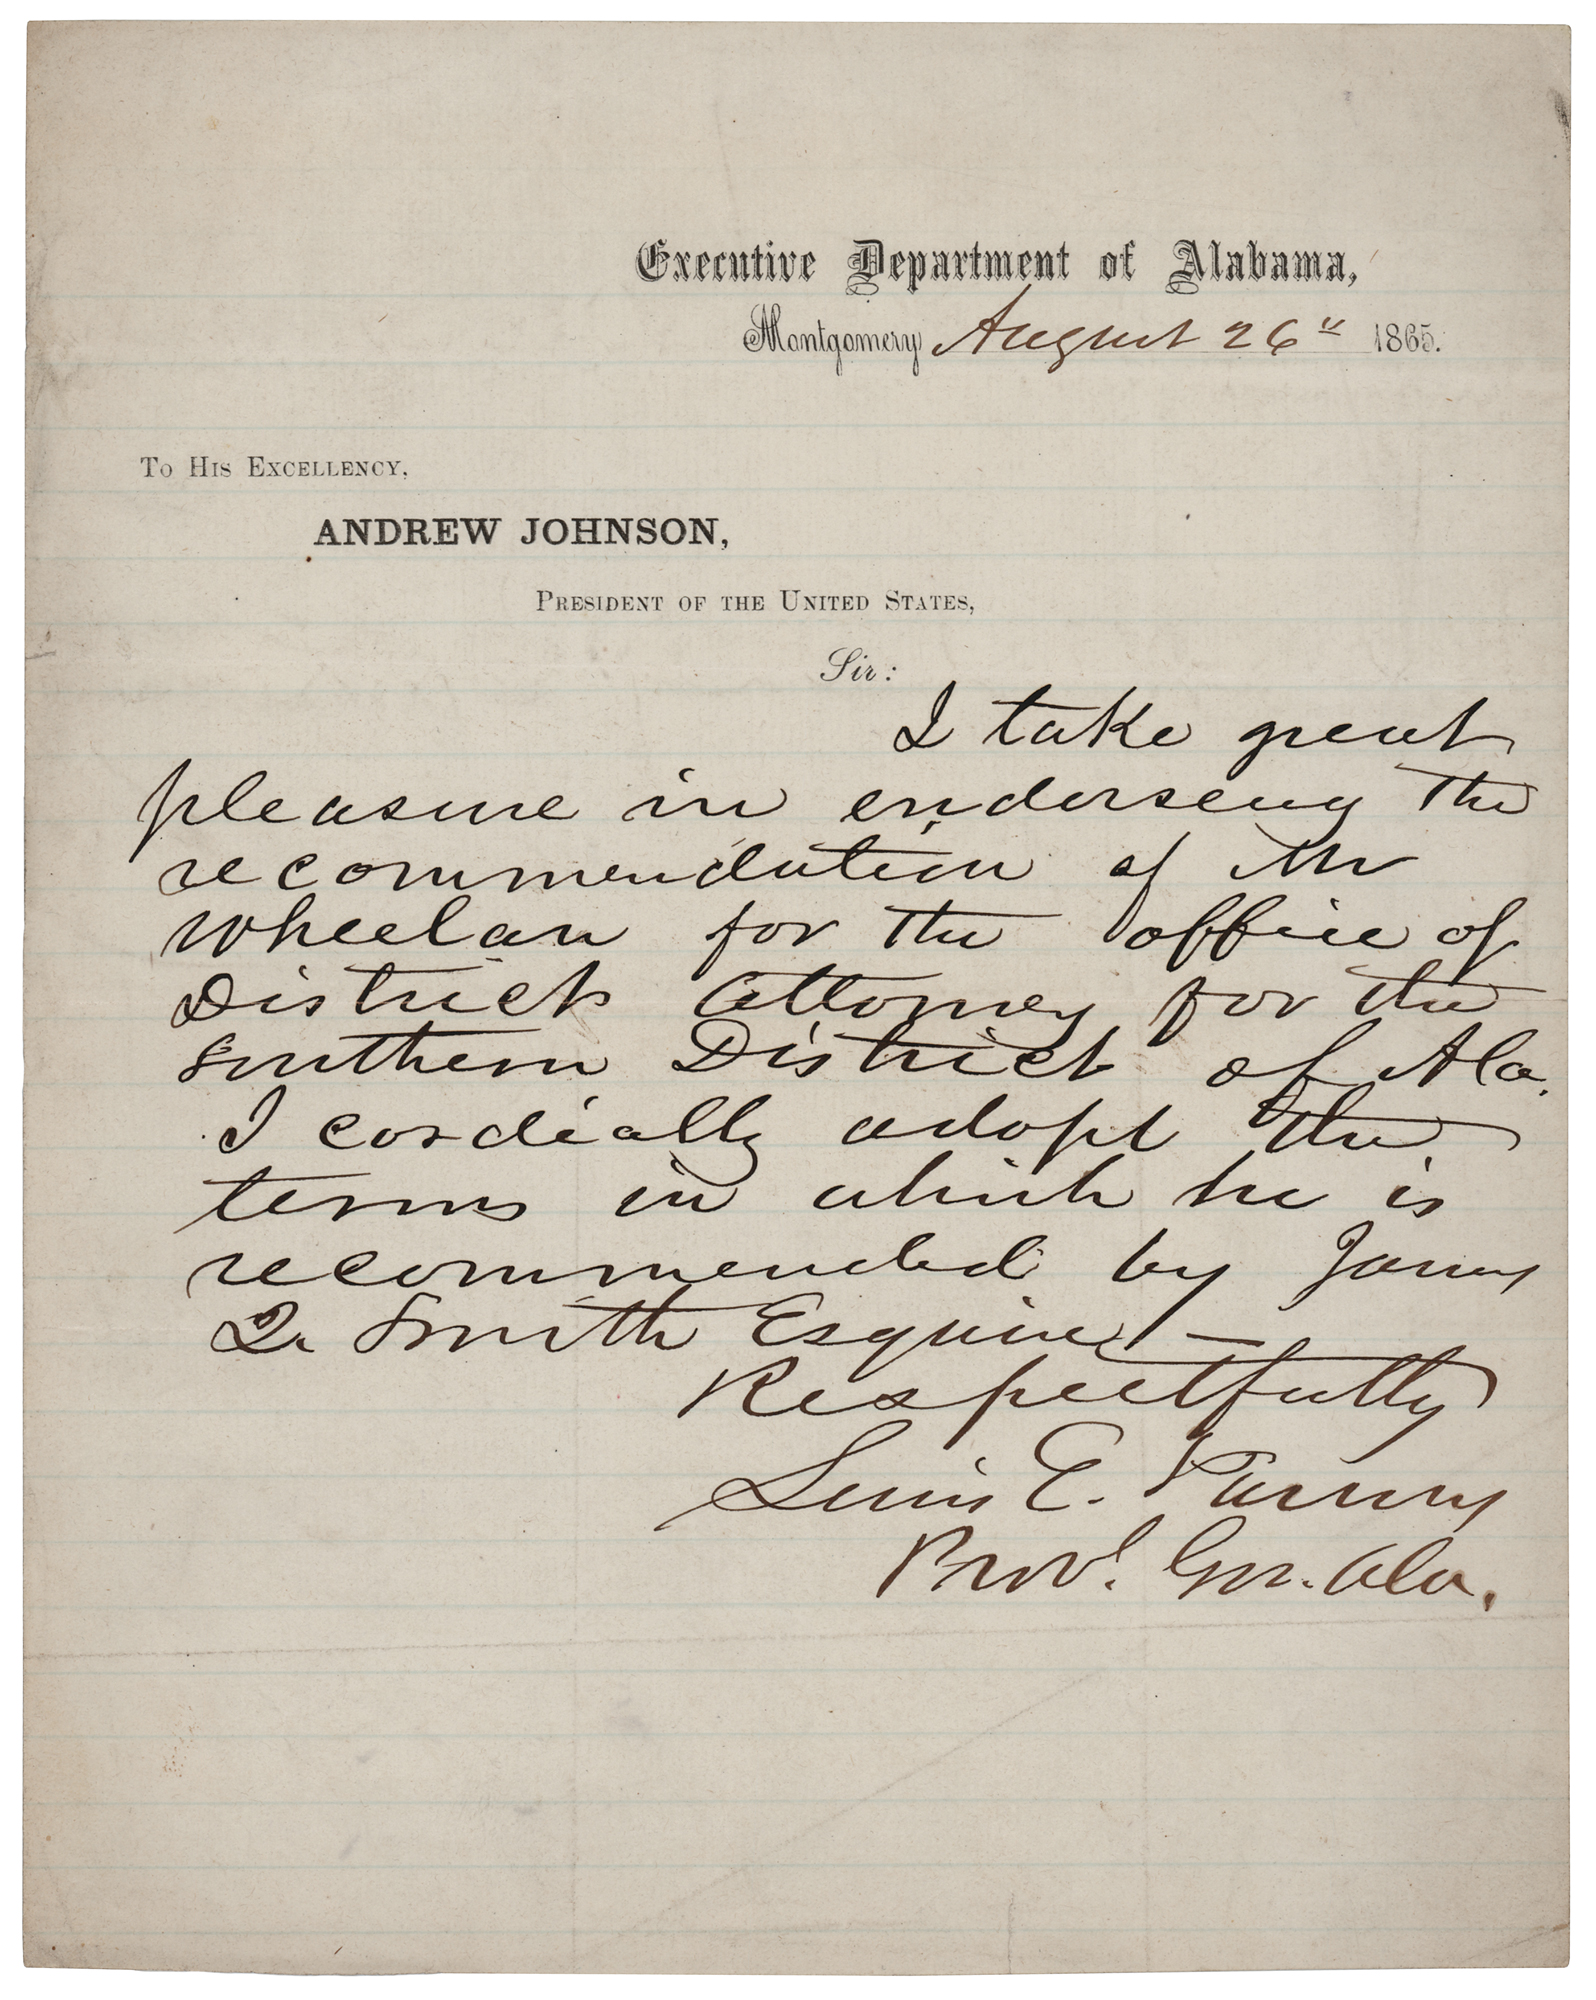 Executive Department of Alabama,
Montgomery August 26" 1865.
To His Excellency,
ANDREW JOHNSON,
President of the United States,
Sir:
I take great
pleasure in endorseing the
recommendation of Mr
Wheelan for the office of
District Attorney for the
Southern District of Ala.
I cordially adopt the
terms in which he is
recommended by James
Q. Smith Esquire —
Respectfully
Lewis E. Parsons
Prov'l. Gov. Ala.